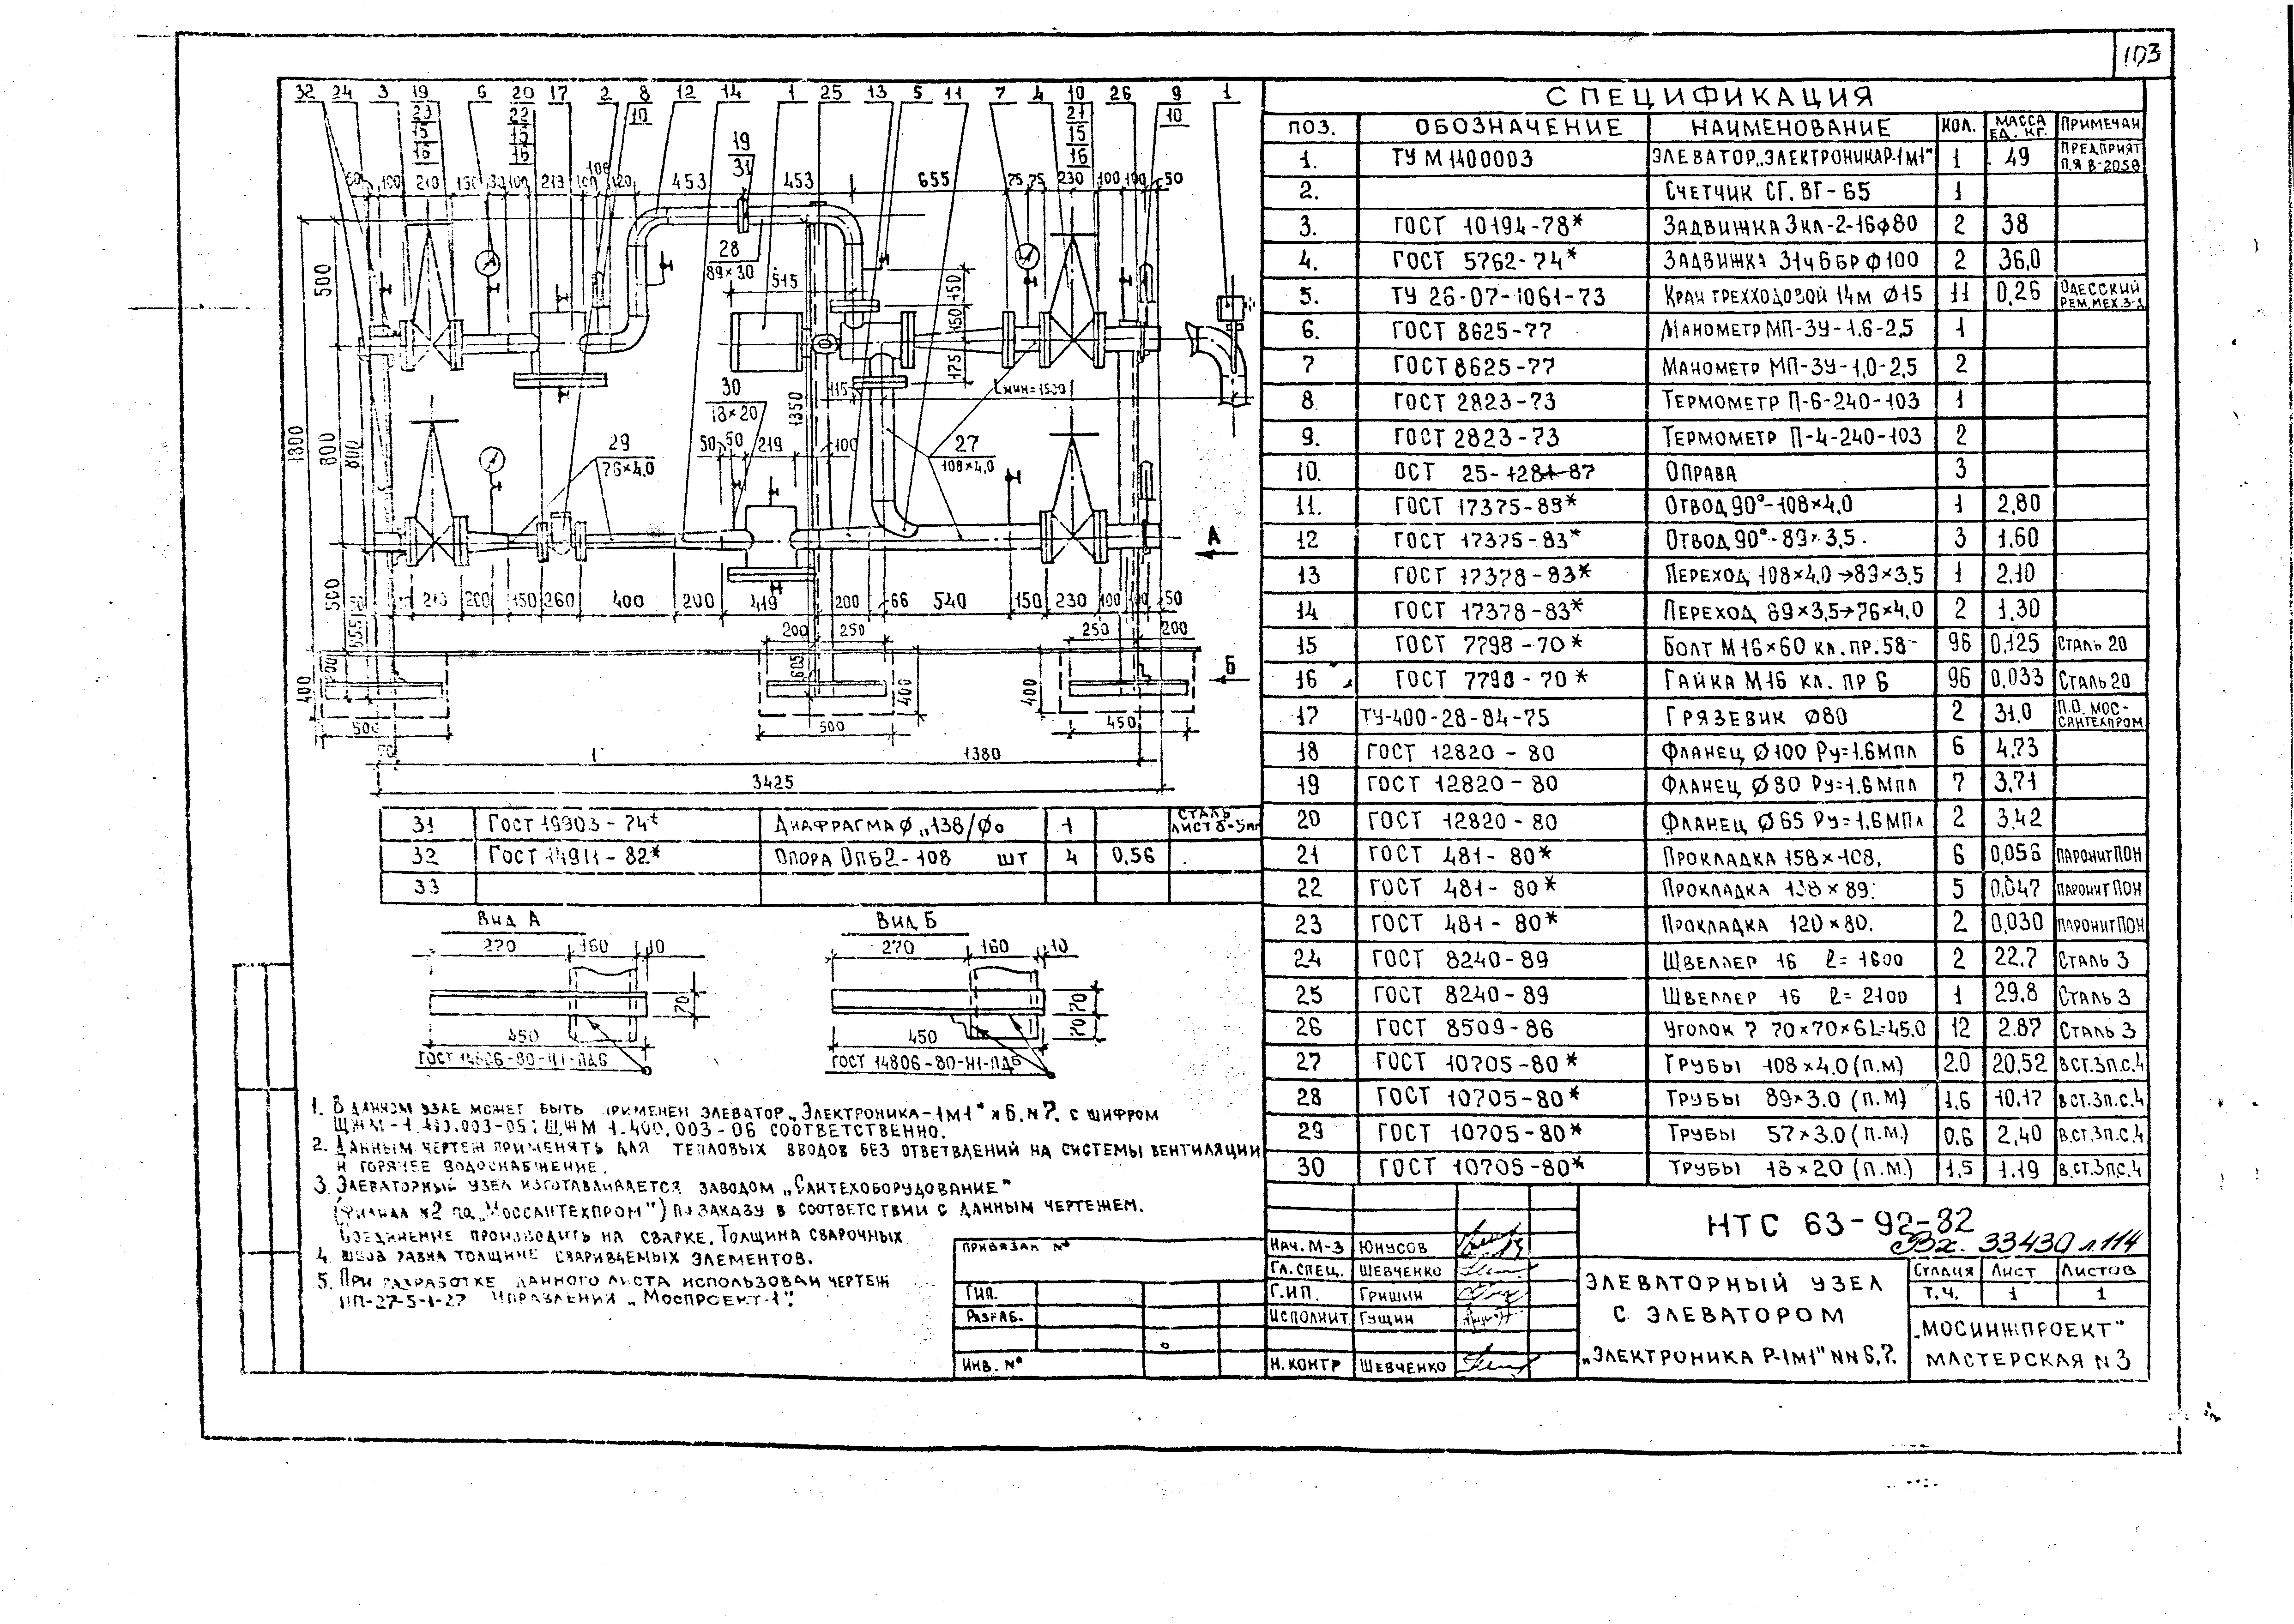 103
32 24 3 19 6 20 17 2 8 12 14 1 25 13 5 11 7 4 10 26 9 1
23 22 10 21 10
15 15 15
16 16 16
19
31
100 210 150 100 213 100 120 453 453 655 75 75 230 100 100 50
28
89×30
515
500
150
150
175
115
Lмин=1500
30
18×20
1350
1800
800
800
29
76×4,0
50 50 219 100
27
108×4,0
А
213 200 150 260 400 200 419 200 66 540 150 230 100 100 50
500
655
200 250
250 200
605
Б
400
400
400
500
500
450
70
1380
3425
СПЕЦИФИКАЦИЯ
ПОЗ. ОБОЗНАЧЕНИЕ НАИМЕНОВАНИЕ КОЛ. МАССА ЕД. КГ. ПРИМЕЧАН
1. ТУ М 1400003 ЭЛЕВАТОР „ЭЛЕКТРОНИКАР-1М1" 1 49 ПРЕДПРИЯТ П.Я В-2058
2. СЧЕТЧИК СГ. ВГ-65 1
3. ГОСТ 10194-78* ЗАДВИЖКА 3КЛ-2-16ф80 2 38
4. ГОСТ 5762-74* ЗАДВИЖКА 31ч6БР Ф100 2 36,0
5. ТУ 26-07-1061-73 КРАН ТРЕХХОДОВОЙ 14М Ø15 11 0,26 ОДЕССКИЙ РЕМ.МЕХ.З-Д
6. ГОСТ 8625-77 МАНОМЕТР МП-3У-1.6-2,5 1
7 ГОСТ 8625-77 МАНОМЕТР МП-3У-1,0-2,5 2
8. ГОСТ 2823-73 ТЕРМОМЕТР П-6-240-103 1
9. ГОСТ 2823-73 ТЕРМОМЕТР П-4-240-103 2
10. ОСТ 25-1281-87 ОПРАВА 3
11. ГОСТ 17375-83* ОТВОД 90°-108×4,0 1 2,80
12 ГОСТ 17375-83* ОТВОД 90°-89×3,5. 3 1.60
13 ГОСТ 17378-83* ПЕРЕХОД 108×4,0→89×3,5 1 2,10
14 ГОСТ 17378-83* ПЕРЕХОД 89×3,5→76×4,0 2 1,30
15 ГОСТ 7798-70* БОЛТ М16×60 КЛ. ПР. 58- 96 0,125 СТАЛЬ 20
16 ГОСТ 7798-70* ГАЙКА М16 КЛ. ПР 6 96 0,033 СТАЛЬ 20
17 ТУ-400-28-84-75 ГРЯЗЕВИК Ø80 2 31.0 П.О. МОС-САНТЕХПРОМ
18 ГОСТ 12820-80 ФЛАНЕЦ Ø100 Ру=1.6МПА 6 4,73
19 ГОСТ 12820-80 ФЛАНЕЦ Ø80 Ру=1.6МПА 7 3,71
20 ГОСТ 12820-80 ФЛАНЕЦ Ø65 Ру=1,6МПА 2 3,42
21 ГОСТ 481-80* ПРОКЛАДКА 158×108, 6 0,056 ПАРОНИТ ПОН
22 ГОСТ 481-80* ПРОКЛАДКА 138×89. 5 0,047 ПАРОНИТ ПОН
23 ГОСТ 481-80* ПРОКЛАДКА 120×80. 2 0,030 ПАРОНИТ ПОН
24 ГОСТ 8240-89 ШВЕЛЛЕР 16 ℓ=1600 2 22.7 СТАЛЬ 3
25 ГОСТ 8240-89 ШВЕЛЛЕР 16 ℓ=2100 1 29.8 СТАЛЬ 3
26 ГОСТ 8509-86 УГОЛОК 7 70×70×6L=45.0 12 2.87 СТАЛЬ 3
27 ГОСТ 10705-80* ТРУБЫ 108×4.0 (П.М) 2.0 20,52 В СТ.3П.С.4
28 ГОСТ 10705-80* ТРУБЫ 89×3.0 (П.М) 1,6 10.17 В СТ.3П.С.4
29 ГОСТ 10705-80* ТРУБЫ 57×3.0 (П.М.) 0,6 2,40 В.СТ.3П.С.4
30 ГОСТ 10705-80* ТРУБЫ 18×20 (П.М.) 1,5 1.19 В.СТ.3ПС.4
31 ГОСТ 19903-74* ДИАФРАГМА Ф „138/Фо 1 СТАЛЬ ЛИСТ
32 ГОСТ 14911-82* ОПОРА ОПБ2-108 ШТ 4 0,56
33
Вид А
270 160 10
70
450
ГОСТ 14806-80-Н1-ПД6
Вид Б
270 160 10
70
70
450
ГОСТ 14806-80-Н1-ПД6
1. В ДАННОМ УЗЛЕ МОЖЕТ БЫТЬ ПРИМЕНЕН ЭЛЕВАТОР „ЭЛЕКТРОНИКА-1М1" №6, №7. С ШИФРОМ
ЩЖМ-1.400.003-05; ЩЖМ 1.400.003-06 СООТВЕТСТВЕННО.
2. ДАННЫМ ЧЕРТЕЖ ПРИМЕНЯТЬ ДЛЯ ТЕПЛОВЫХ ВВОДОВ БЕЗ ОТВЕТВЛЕНИЙ НА СИСТЕМЫ ВЕНТИЛЯЦИИ
И ГОРЯЧЕЕ ВОДОСНАБЖЕНИЕ.
3. ЭЛЕВАТОРНЫЙ УЗЕЛ ИЗГОТАВЛИВАЕТСЯ ЗАВОДОМ „САНТЕХОБОРУДОВАНИЕ"
(ФИЛИАЛ №2 ПО „МОССАНТЕХПРОМ") ПО ЗАКАЗУ В СООТВЕТСТВИИ С ДАННЫМ ЧЕРТЕЖЕМ.
СОЕДИНЕНИЕ ПРОИЗВОДИТЬ НА СВАРКЕ. ТОЛЩИНА СВАРОЧНЫХ
4. ШВОВ РАВНА ТОЛЩИНЕ СВАРИВАЕМЫХ ЭЛЕМЕНТОВ.
5. ПРИ РАЗРАБОТКЕ ДАННОГО ЛИСТА ИСПОЛЬЗОВАН ЧЕРТЕЖ
НП-27-5-1-27 УПРАВЛЕНИЯ „МОСПРОЕКТ-1".
ПРИВЯЗАН №
ГИП.
РАЗРАБ.
ИНВ. №
НАЧ. М-3 ЮНУСОВ
ГЛ. СПЕЦ. ШЕВЧЕНКО
Г.ИП. ГРИШИН
ИСПОЛНИТ ГУЩИН
Н.КОНТР ШЕВЧЕНКО
НТС 63-92-82
Вх. 33430 л.114
ЭЛЕВАТОРНЫЙ УЗЕЛ
С ЭЛЕВАТОРОМ
„ЭЛЕКТРОНИКА Р-1М1" NN 6,7.
СТАДИЯ ЛИСТ ЛИСТОВ
Т.Ч. 1 1
„МОСИНЖПРОЕКТ"
МАСТЕРСКАЯ N3